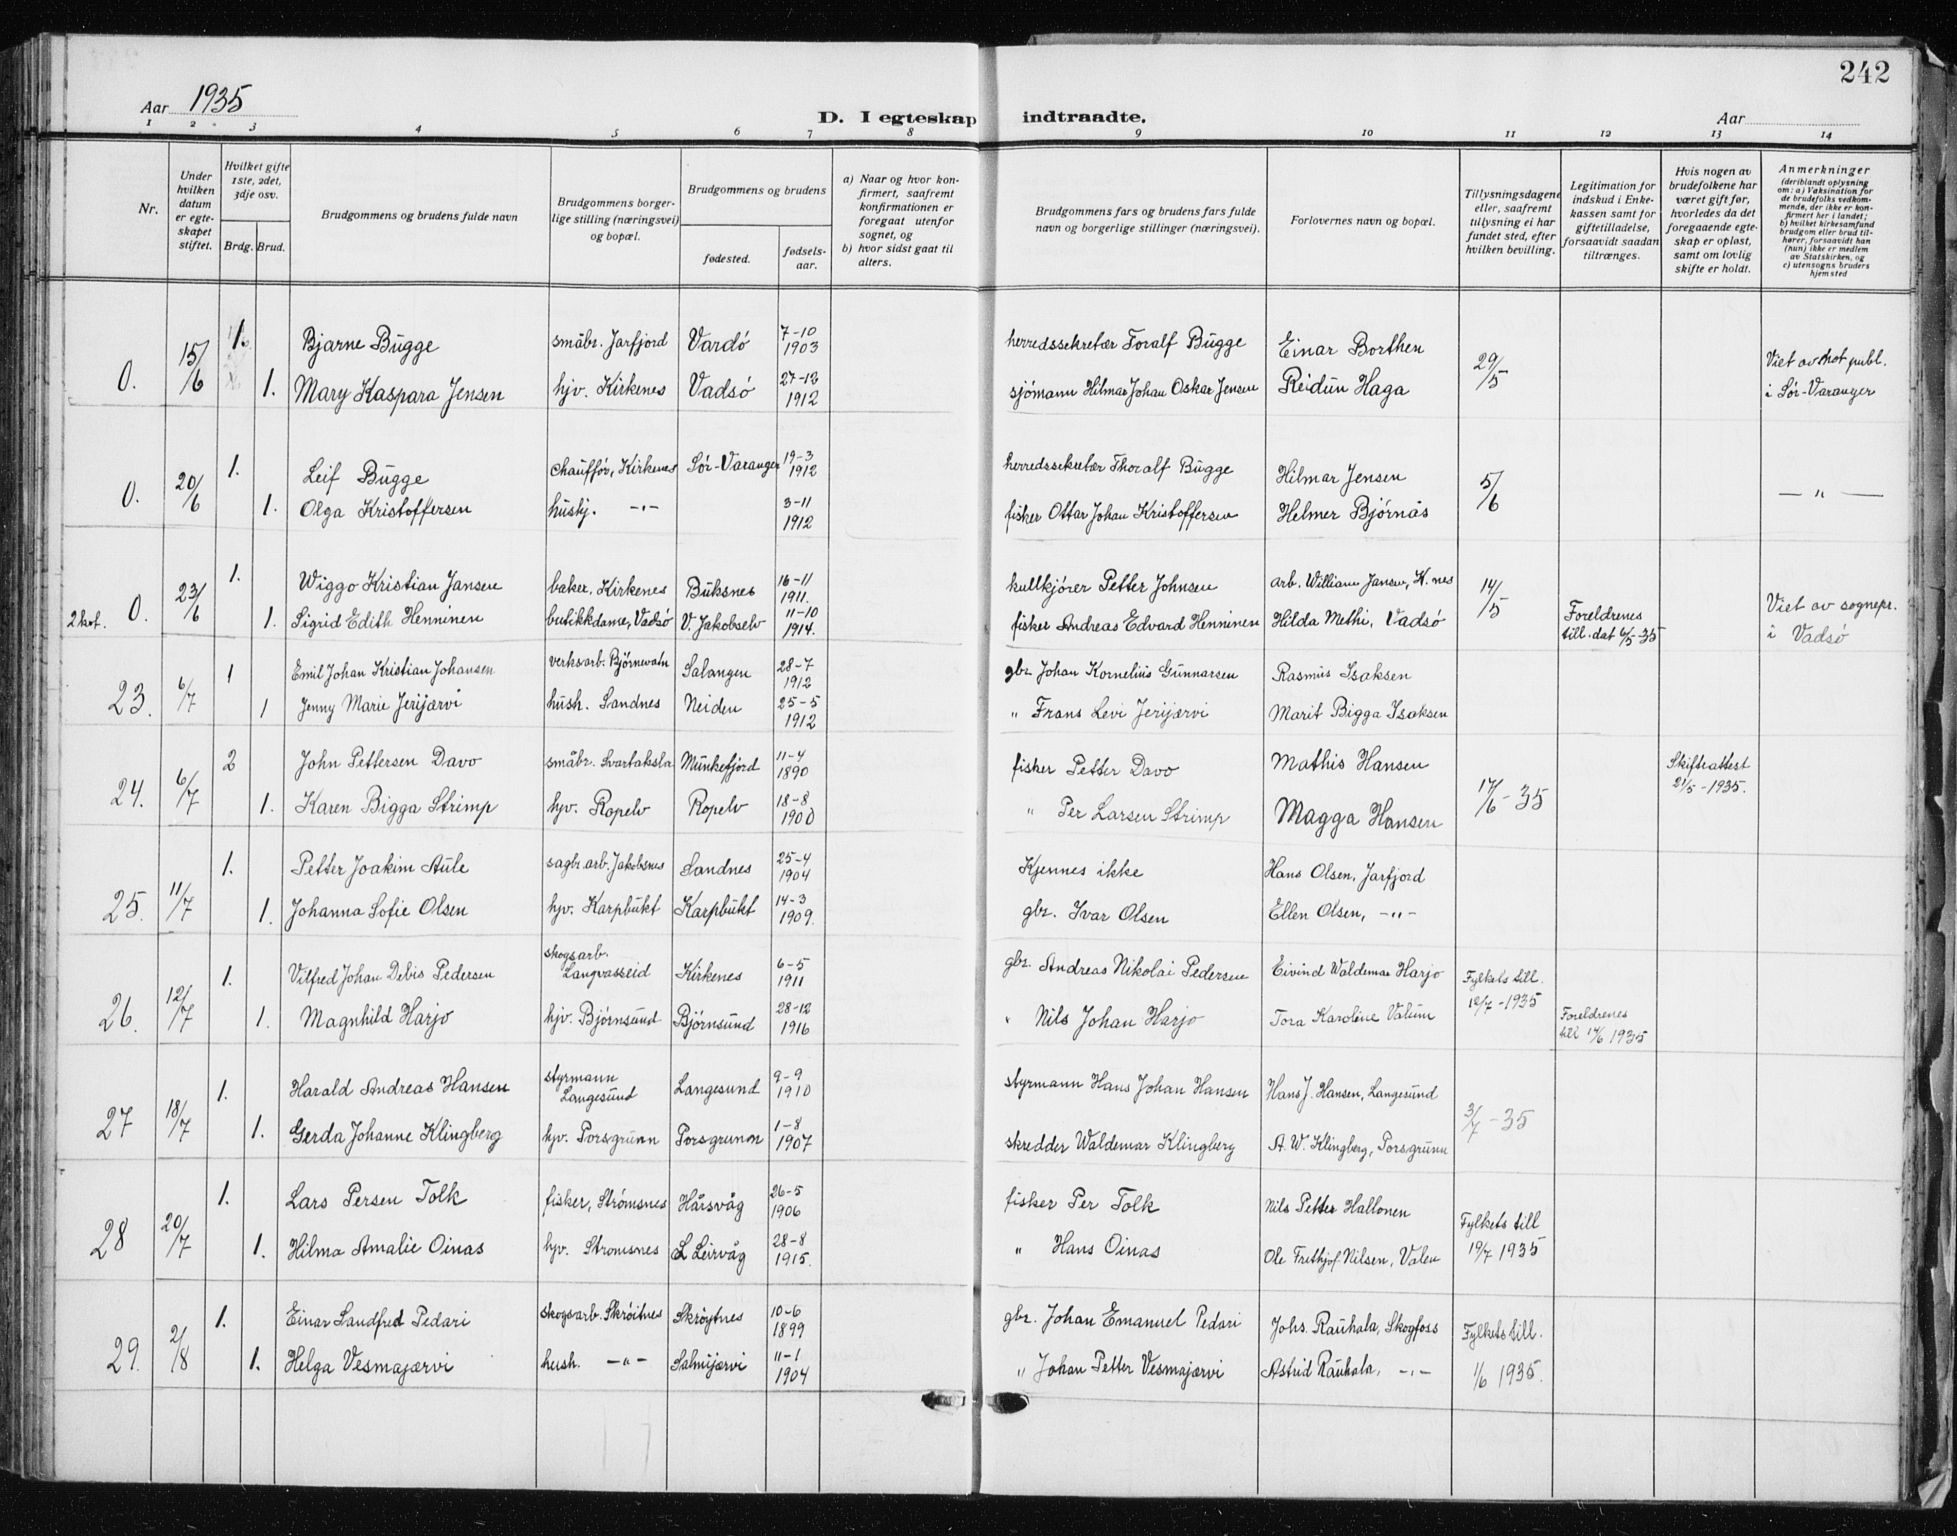 242
Aar 1935
D. I egteskap indtraadte.
Aar
1 2 3 4 5 6 7 8 9 10 11 12 13 14
Nr.
Under hvilken datum er egteskapet stiftet.
Hvilket gifte 1ste, 2det, 3dje osv.
Brdg. Brud.
Brudgommens og brudens fulde navn
Brudgommens borgerlige stilling (næringsvei) og bopæl.
Brudgommens og brudens
fødested.
fødselsaar.
a) Naar og hvor konfirmert, saafremt konfirmationen er foregaat utenfor sognet, og
b) hvor sidst gaat til alters.
Brudgommens fars og brudens fars fulde navn og borgerlige stillinger (næringsvei).
Forlovernes navn og bopæl.
Tillysningsdagene eller, saafremt tillysning ei har fundet sted, efter hvilken bevilling.
Legitimation for indskud i Enkekassen samt for giftetilladelse, forsaavidt saadan tiltrænges.
Hvis nogen av brudefolkene har været gift før, hvorledes da det foregaaende egteskap er opløst, samt om lovlig skifte er holdt.
Anmerkninger (deriblandt oplysning om: a) Vaksination for de brudefolks vedkommende, der ikke er konfirmert her i landet; b) hvilket kirkesamfund brudgom eller brud tilhører, forsaavidt han (hun) ikke er medlem av Statskirken, og c) utensogns bruders hjemsted
0. 15/6 1. Bjarne Bugge småbr. Jarfjord Vardø 7-10 1903 herredssekretær Toralf Bugge Einar Borthen 29/5 Viet av not publ.
1. Mary Kaspara Jensen hjv. Kirkenes Vadsø 27-12 1912 sjømann Hilmar Johan Oskar Jensen Reidun Haga i Sør-Varanger
0. 20/6 1. Leif Bugge chauffør, Kirkenes Sør-Varanger 19-3 1912 herredssekretær Thoralf Bugge Hilmar Jensen 5/6 — " —
1. Olga Kristoffersen hushj. -"- 3-11 1912 fisker Ottar Johan Kristoffersen Helmer Bjørnås
2 kot. 0. 23/6 1. Wiggo Kristian Jansen baker, Kirkenes Buksnes 16-11 1911. kullkjører Petter Johnsen arb. William Jansen, K.nes 14/5 Viet av sognepr.
1. Sigrid Edith Henninen butikkdame, Vadsø V. Jakobselv 11-10 1914. fisker Andreas Edvard Henninen Hilda Methi, Vadsø Foreldrenes till. dat 6/5-35 i Vadsø
23. 6/7 1 Emil Johan Kristian Johansen verksarb. Bjørnevatn Salangen 28-7 1912 gbr. Johan Kornelius Gunnarsen Rasmus Isaksen
1 Jenny Marie Jerijærvi hush. Sandnes Neiden 25-5 1912 " Frans Levi Jerijærvi Marit Bigga Isaksen
24. 6/7 2 John Pettersen Davo småbr. Svartaksla Munkefjord 11-4 1890 fisker Petter Davo Mathis Hansen 17/6-35 Skifteattest 21/5-1935.
1. Karen Bigga Strimp hjv. Ropelv Ropelv 18-8 1900 " Per Larsen Strimp Magga Hansen
25. 11/7 1. Petter Joakim Aule sagbr.arb. Jakobsnes Sandnes 25-4 1904 Kjennes ikke Hans Olsen, Jarfjord
1. Johanna Sofie Olsen hjv. Karpbukt Karpbukt 14-3 1909. gbr. Ivar Olsen Ellen Olsen, -"-
26. 12/7 1. Vilfred Johan Debis Pedersen skogsarb. Langvasseid Kirkenes 6-5 1911 gbr. Andreas Nikolai Pedersen Eivind Waldemar Harjo Fylkets till. 12/7-1935
1. Magnhild Harjo hjv. Bjørnsund Bjørnsund 28-12 1916 " Nils Johan Harjo Tora Karoline Valum Foreldrenes till 14/6 1935
27 18/7 1. Harald Andreas Hansen styrmann Langesund Langesund 9-9 1910 styrmann Hans Johan Hansen Hans J. Hansen, Langesund 3/7-35
1. Gerda Johanne Klingberg hjv. Porsgrunn Porsgrunn 1-8 1907 skredder Waldemar Klingberg A. W. Klingberg, Porsgrunn
28 20/7 1. Lars Persen Tolk fisker, Strømsnes Hårsvåg 26-5 1906 fisker Per Tolk Nils Petter Hallonen Fylkets till 19/7 1935
1. Hilma Amalie Oinas hjv. Stromsnes L Leirvåg 28-8 1915. " Hans Oinas Ole Frithjof Nilsen, Valen
29. 2/8 1. Einar Sandfred Pedari skogsarb. Skrøitnes Skrøytnes 10-6 1899 gbr. Johan Emanuel Pedari Johs. Rauhala, Skogfoss Fylkets till. 1/6 1935.
1. Helga Vesmajærvi hush. -"- Salmijærvi 11-1 1904 " Johan Petter Vesmajærvi Astrid Rauhala, -"-